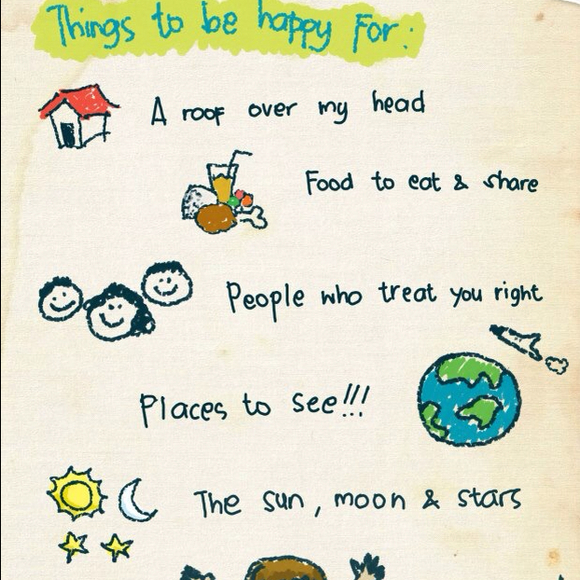 Things to be happy for:
A roof over my head
Food to eat & share
People who treat you right
Places to see!!!
The sun, moon & stars